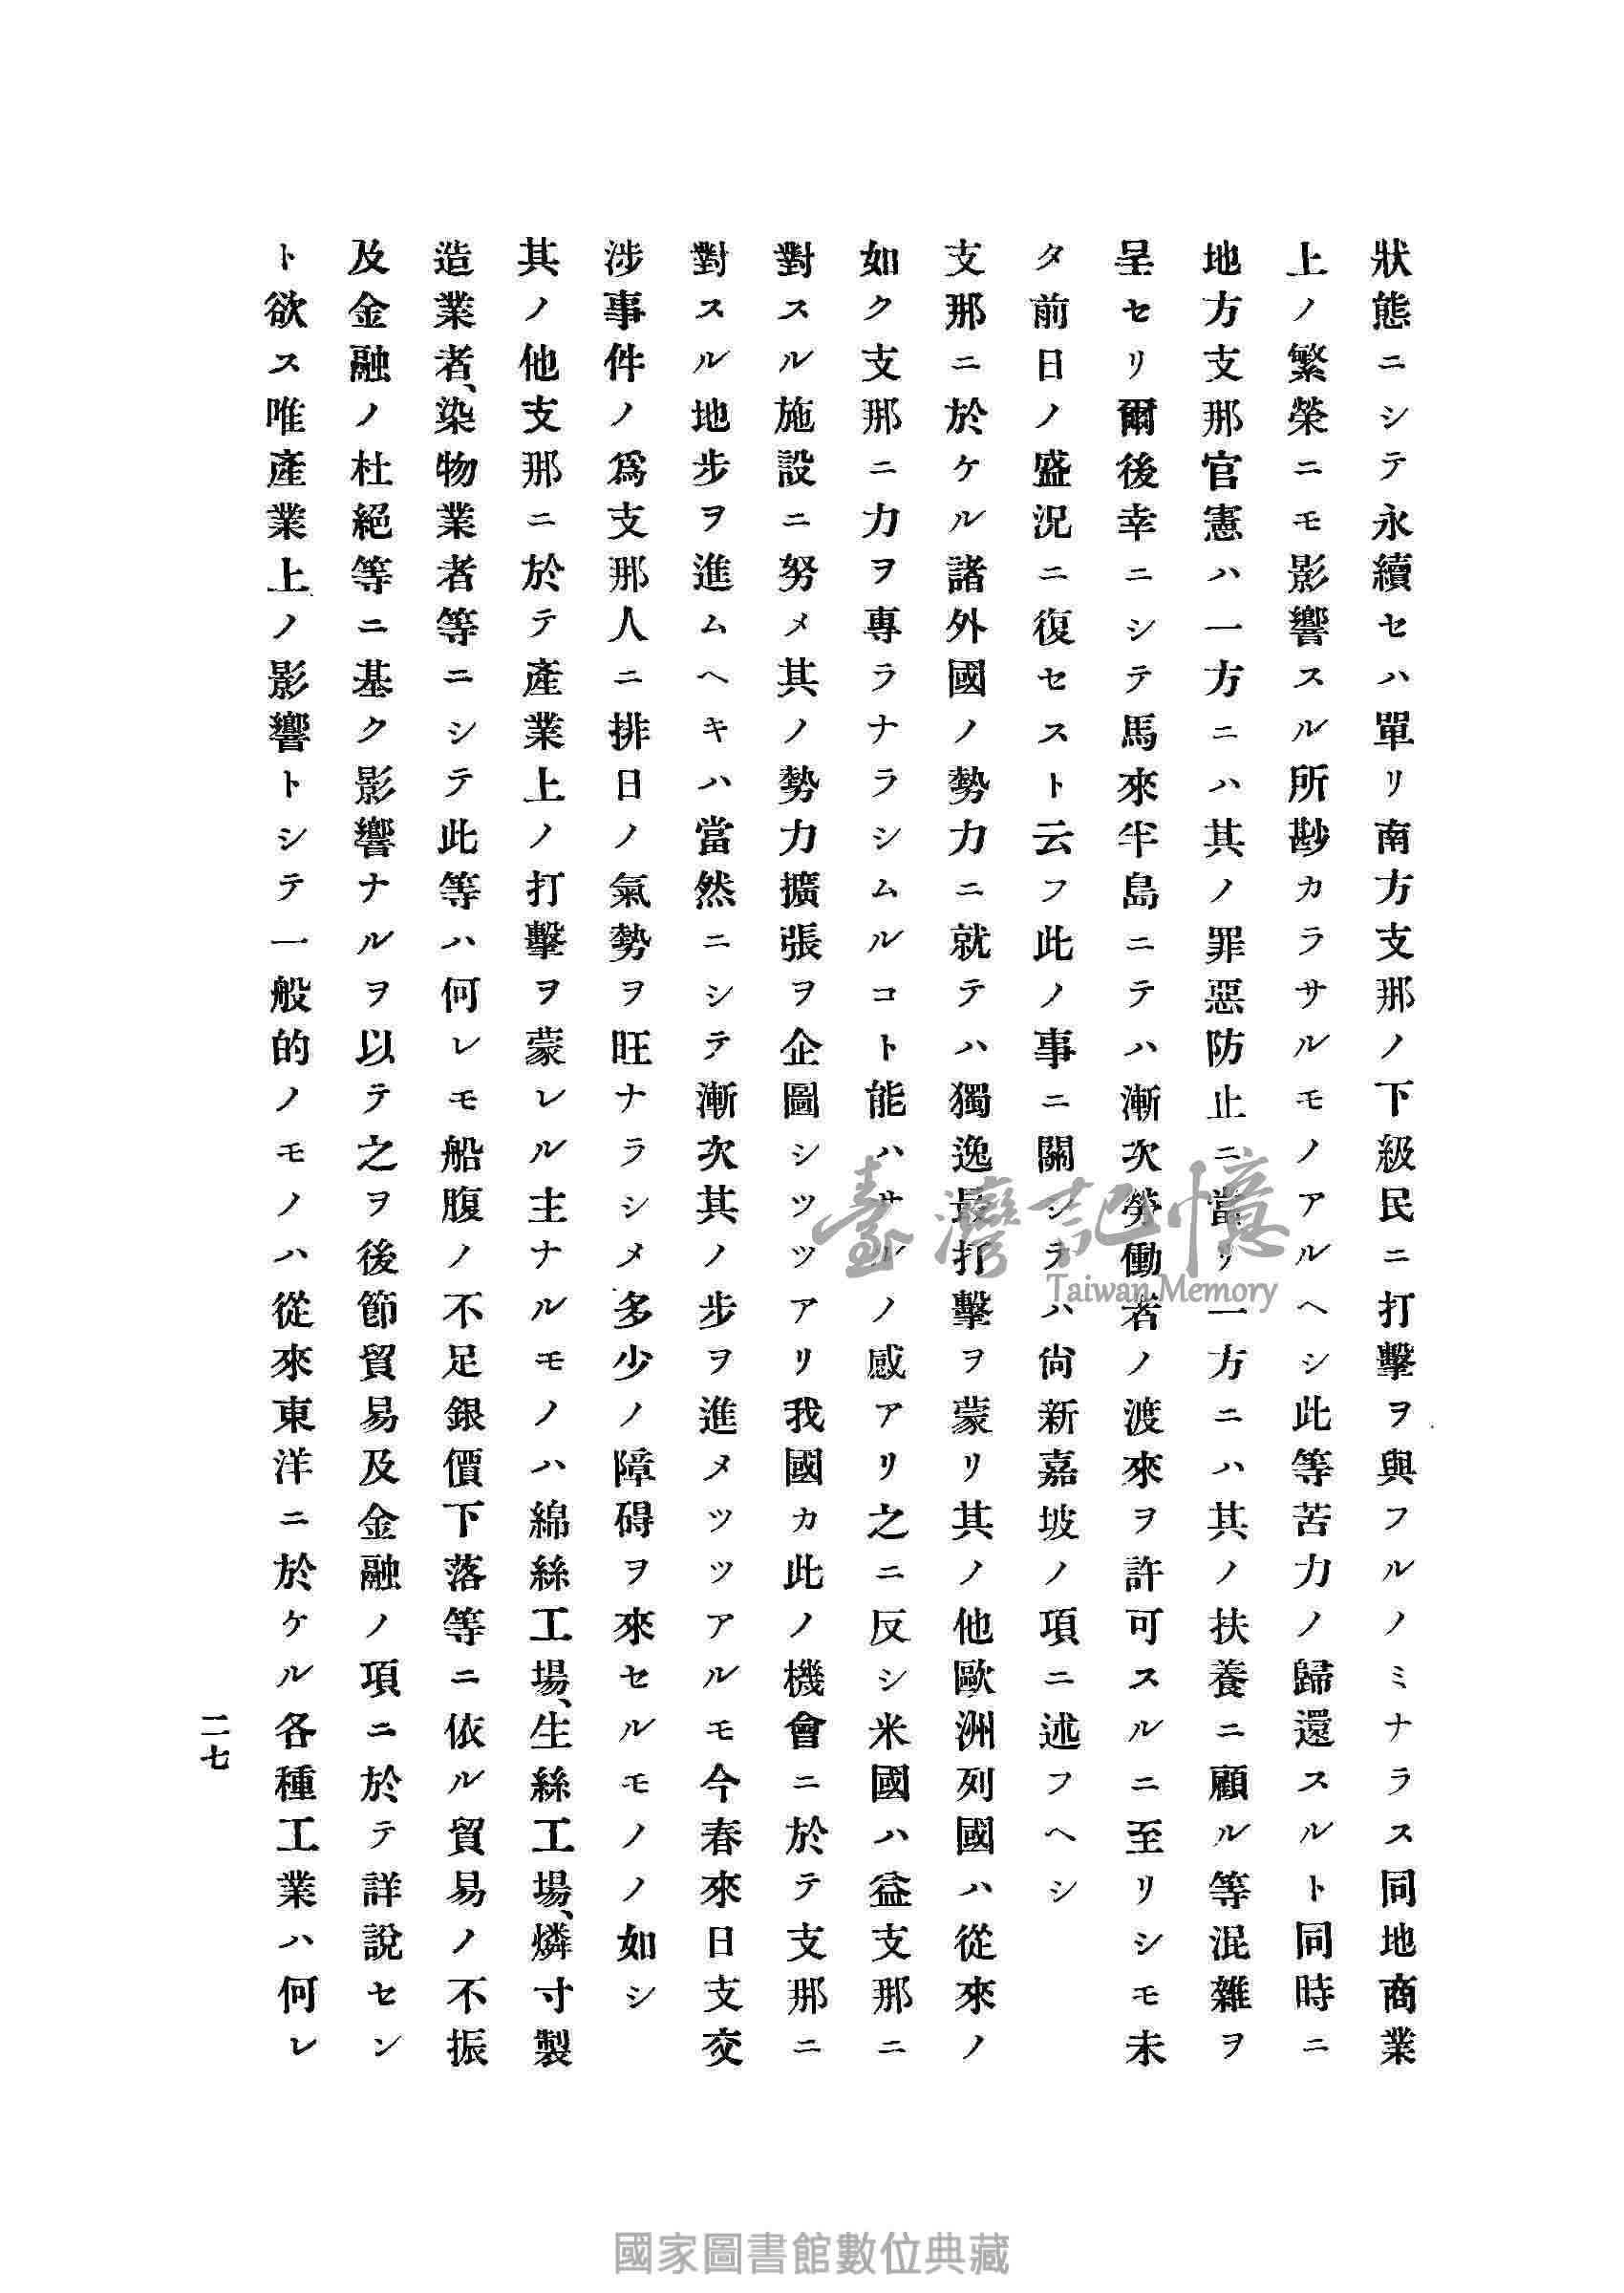 狀態ニシテ永續セハ單リ南方支那ノ下級民ニ打擊ヲ與フルノミナラス同地商業
上ノ繁榮ニモ影響スル所尠カラサルモノアルヘシ此等苦力ノ歸還スルト同時ニ
地方支那官憲ハ一方ニハ其ノ罪惡防止ニ當リ一方ニハ其ノ扶養ニ顧ル等混雜ヲ
呈セリ爾後幸ニシテ馬來半島ニテハ漸次勞働者ノ渡來ヲ許可スルニ至リシモ未
タ前日ノ盛況ニ復セスト云フ此ノ事ニ關シテハ尙新嘉坡ノ項ニ述フヘシ
支那ニ於ケル諸外國ノ勢力ニ就テハ獨逸最打擊ヲ蒙リ其ノ他歐洲列國ハ從來ノ
如ク支那ニ力ヲ專ラナラシムルコト能ハサルノ感アリ之ニ反シ米國ハ益支那ニ
對スル施設ニ努メ其ノ勢力擴張ヲ企圖シツツアリ我國カ此ノ機會ニ於テ支那ニ
對スル地步ヲ進ムヘキハ當然ニシテ漸次其ノ步ヲ進メツツアルモ今春來日支交
涉事件ノ爲支那人ニ排日ノ氣勢ヲ旺ナラシメ多少ノ障碍ヲ來セルモノノ如シ
其ノ他支那ニ於テ產業上ノ打擊ヲ蒙レル主ナルモノハ綿絲工場、生絲工場、燐寸製
造業者、染物業者等ニシテ此等ハ何レモ船腹ノ不足銀價下落等ニ依ル貿易ノ不振
及金融ノ杜絕等ニ基ク影響ナルヲ以テ之ヲ後節貿易及金融ノ項ニ於テ詳說セン
ト欲ス唯產業上ノ影響トシテ一般的ノモノハ從來東洋ニ於ケル各種工業ハ何レ
二七
臺灣記憶
Taiwan Memory
國家圖書館數位典藏